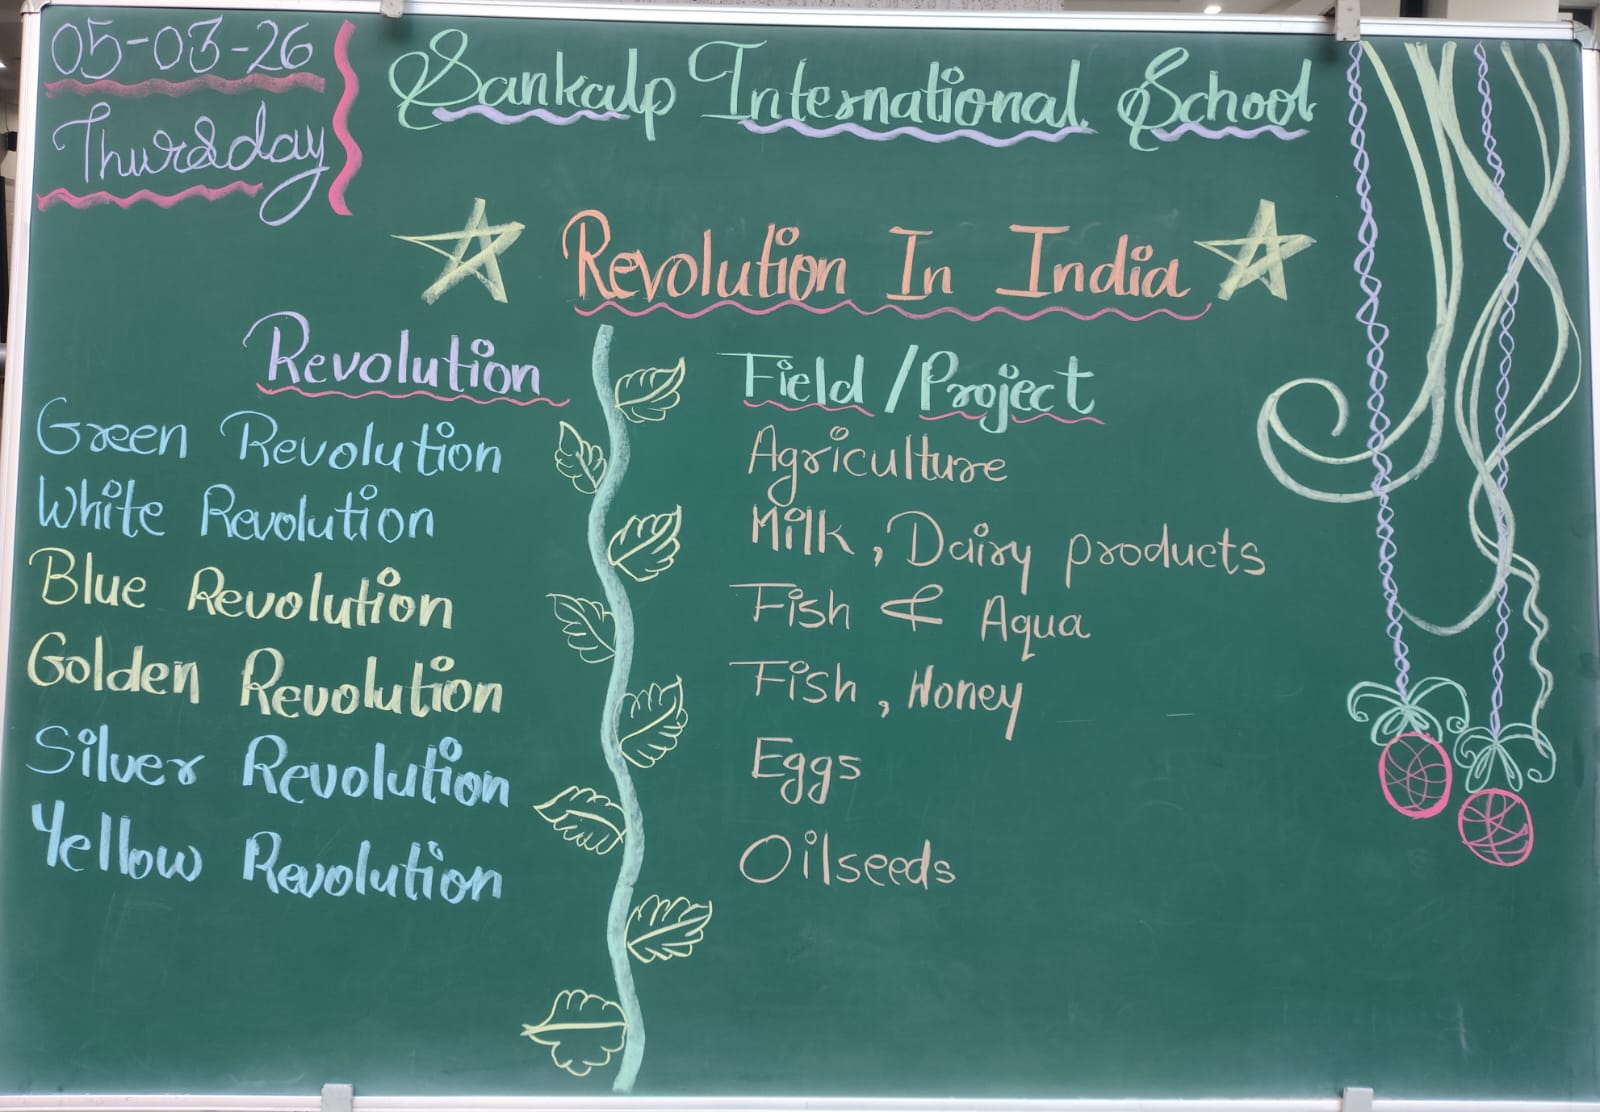 05-03-26
Thursday
Sankalp International School
Revolution In India
Revolution
Field / Project
Green Revolution
Agriculture
White Revolution
Milk, Dairy products
Blue Revolution
Fish & Aqua
Golden Revolution
Fish, Honey
Silver Revolution
Eggs
Yellow Revolution
Oilseeds